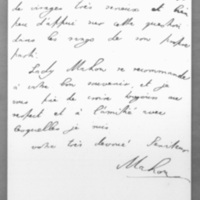 le visages très nouveau et bien
peu d'appui sur cette question
dans les rangs de son propre
parti.
Lady Mahon se recommande
à votre bon souvenir, et je
vous prie de croire toujours au
respect et à l'amitié avec
lesquelles je suis
votre très dévoué Serviteur
Mahon